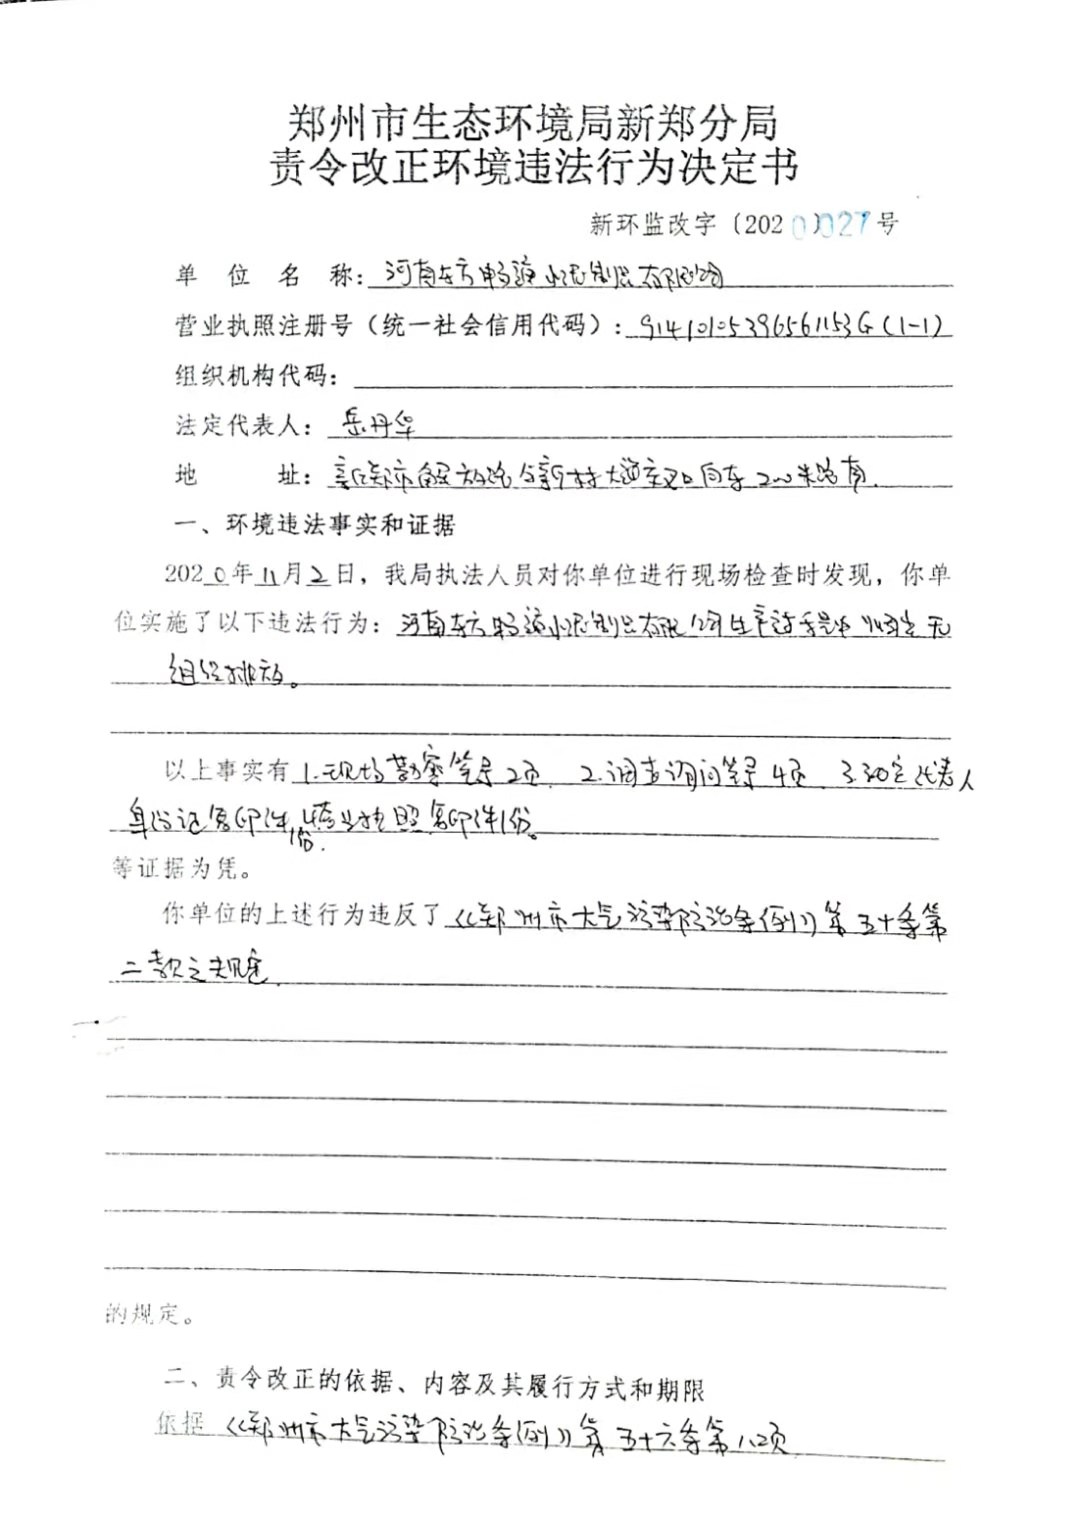 郑州市生态环境局新郑分局
责令改正环境违法行为决定书
新环监改字〔2020〕027号
单位名称：河南东方畅源水泥制品有限公司
营业执照注册号（统一社会信用代码）：91410105396561153G（1-1）
组织机构代码：
法定代表人：岳丹华
地址：新郑市解放路与新村大道交叉口向东200米路南.
一、环境违法事实和证据
2020年11月2日，我局执法人员对你单位进行现场检查时发现，你单
位实施了以下违法行为：河南东方畅源水泥制品有限公司生产过程中烟尘无
组织排放。
以上事实有1.现场勘察笔录2页、2.调查询问笔录4页、3.法定代表人
身份证复印件1份.4.营业执照复印件1份。
等证据为凭。
你单位的上述行为违反了《郑州市大气污染防治条例》第五十条第
二款之规定.
的规定。
二、责令改正的依据、内容及其履行方式和期限
依据《郑州市大气污染防治条例》第五十六条第八项